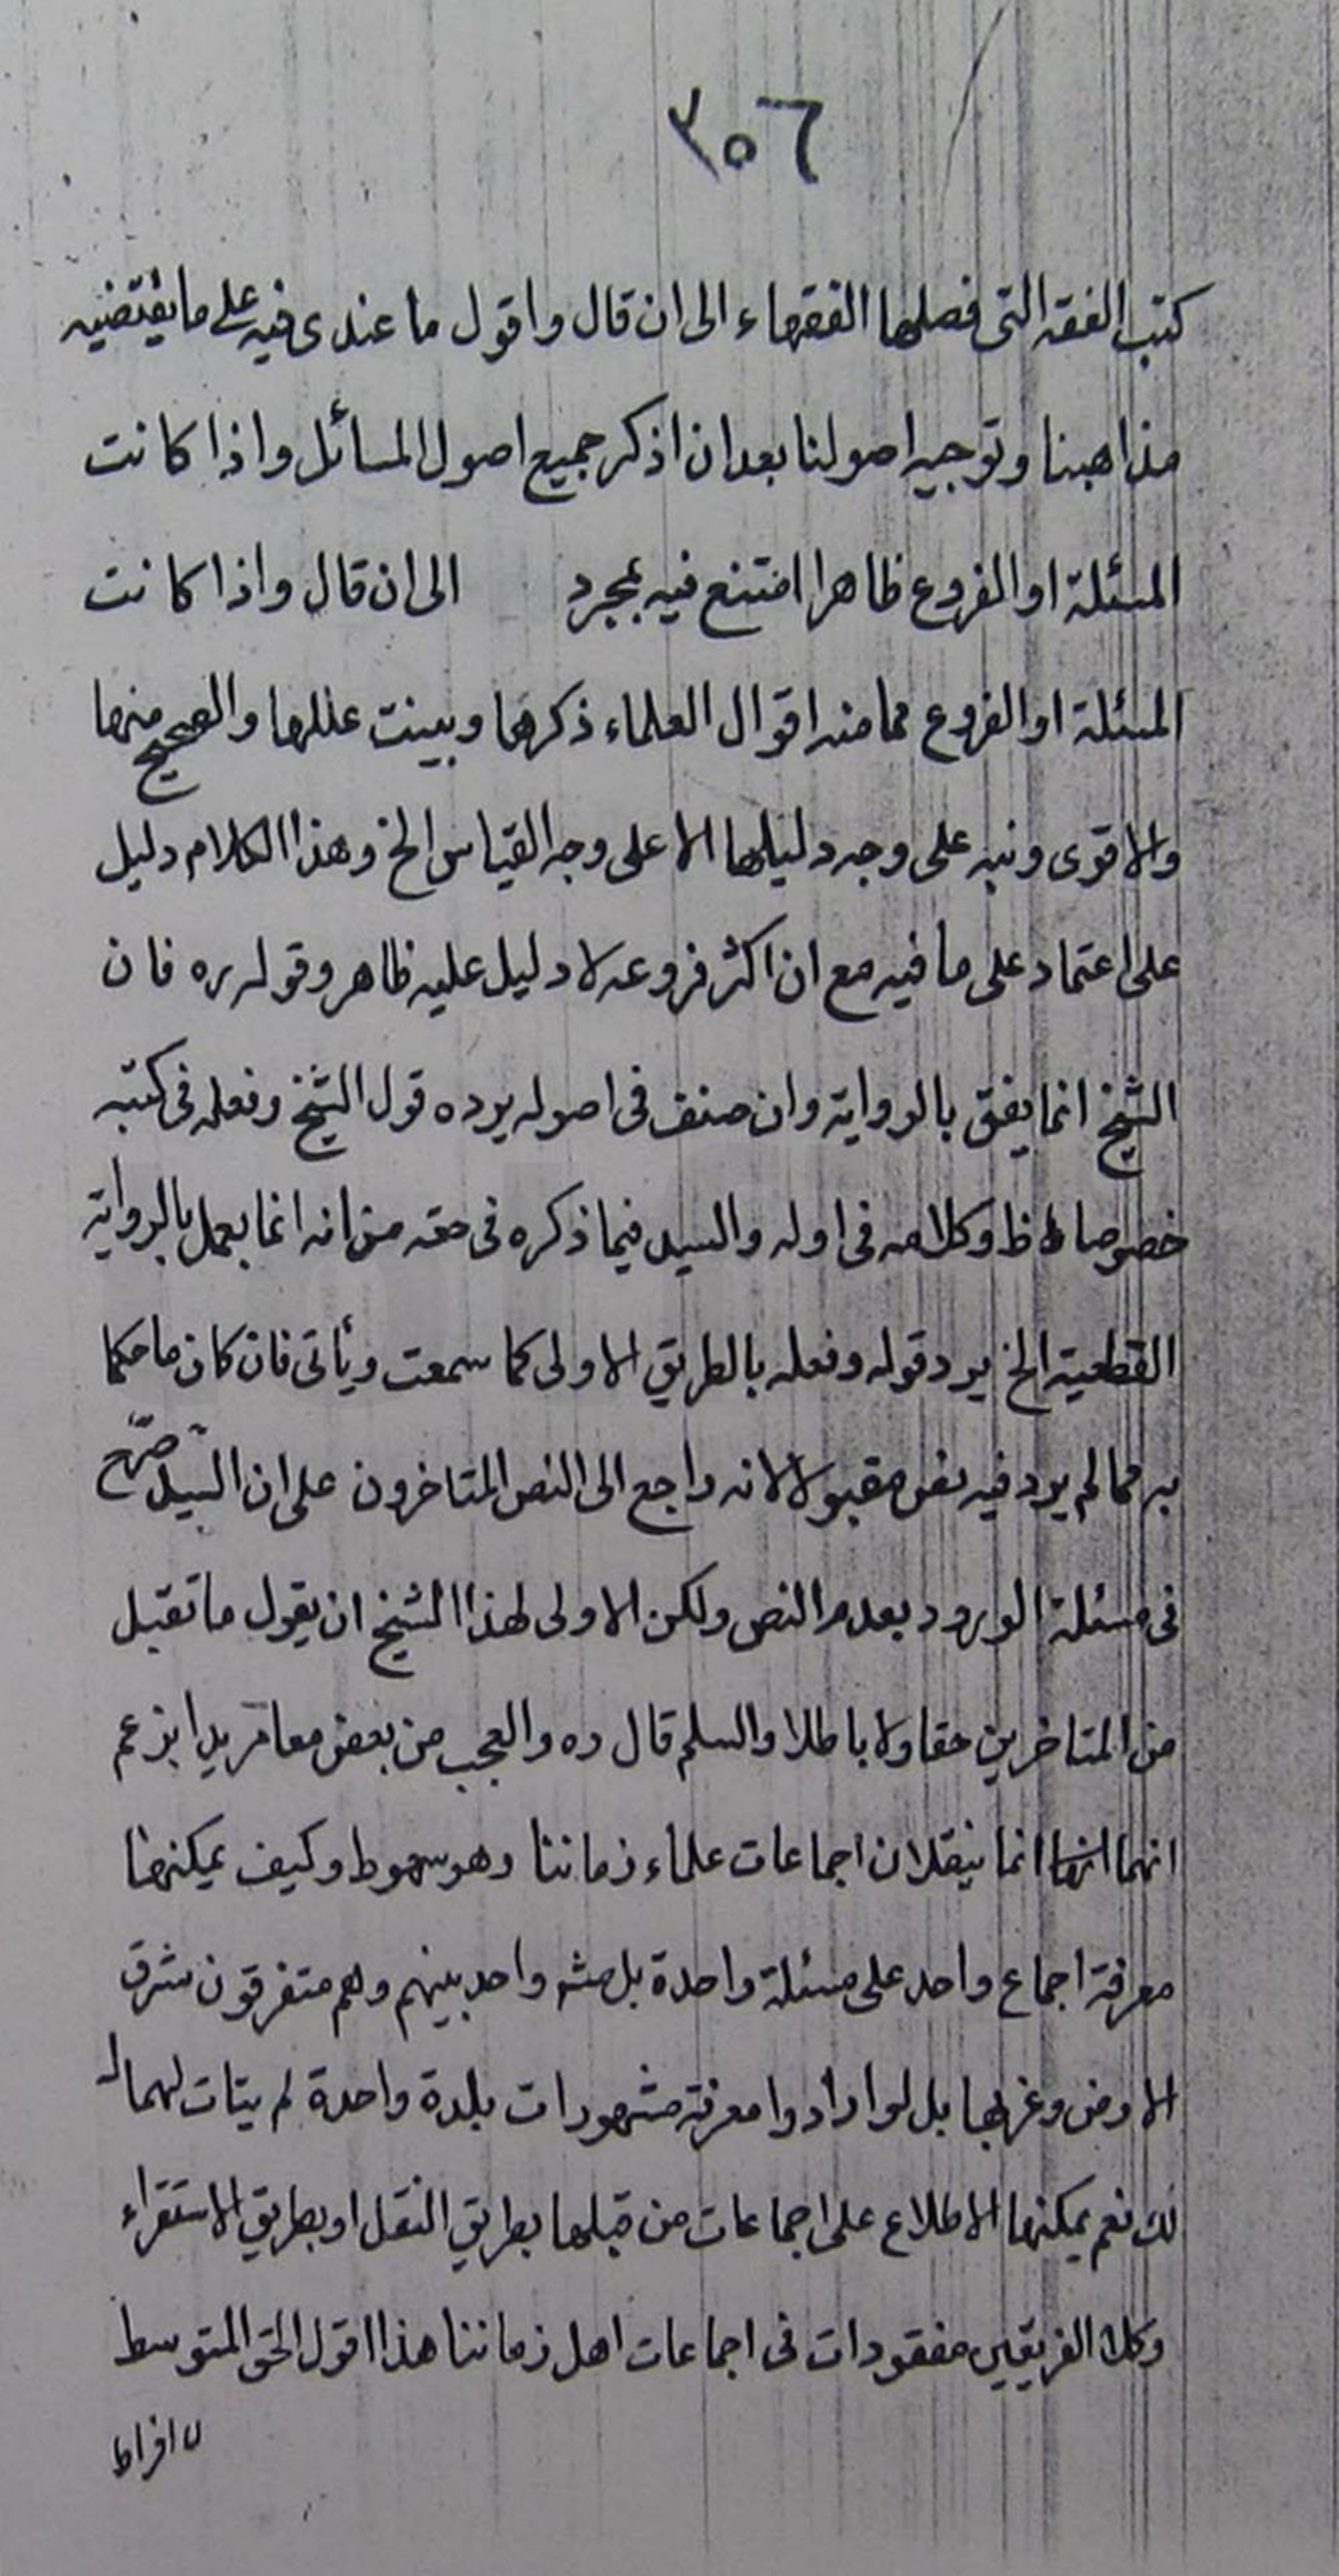 ٣٥٦
كتب الفقه التى فصلها الفقهاء الى ان قال واقول ما عندى فيه على ما يقتضيه
مذاهبنا وتوجيه اصولنا بعد ان اذكر جميع اصول المسائل واذا كانت
المسئلة او الفروع ظاهرا اقتنع فيه بمجرد الى ان قال واذا كانت
المسئلة او الفروع مما منه اقوال العلماء ذكرها وبينت عللها والصحيح منها
والاقوى ونبه على وجه دليلها الا على وجه القياس الخ وهذا الكلام دليل
على اعتماد على ما فيه مع ان اكثر فروعه لا دليل عليه ظاهر وقوله ره فان
الشيخ انما يفتى بالرواية وان صنف فى اصوله يرده قول الشيخ وفعله فى كتبه
خصوصا ط وكلامه فى اوله والسيد فيما ذكره فى حقه من انه انما يعمل بالرواية
القطعية الخ يرد قوله وفعله بالطريق الاولى كما سمعت ويأتى فان كان ما حكما
به مما لم يرد فيه نص مقبولا لانه راجع الى النص المتاخرون على ان السيد صرّح
فى مسئلة الورود بعدم النص ولكن الاولى لهذا الشيخ ان يقول ما تقبل
من المتاخرين حقا ولا باطلا والسلم قال ره والعجب من بعض معاصريدا بزعم
انهما انما ينقلان اجماعات علماء زماننا وهو سهو ط وكيف يمكنهما
معرفة اجماع واحد على مسئلة واحدة بل واحد بينهم وهم متفرقون شرق
الارض وغربها بل لو ارادوا معرفة مشهورات بلدة واحدة لم يتات لهما
لك نعم يمكنهما الاطلاع على اجماعات من قبلها بطريق النقل او بطريق الاستقراء
وكلا الفريقين مفقودات فى اجماعات اهل زماننا هذا اقول الحق المتوسط
لا افراط